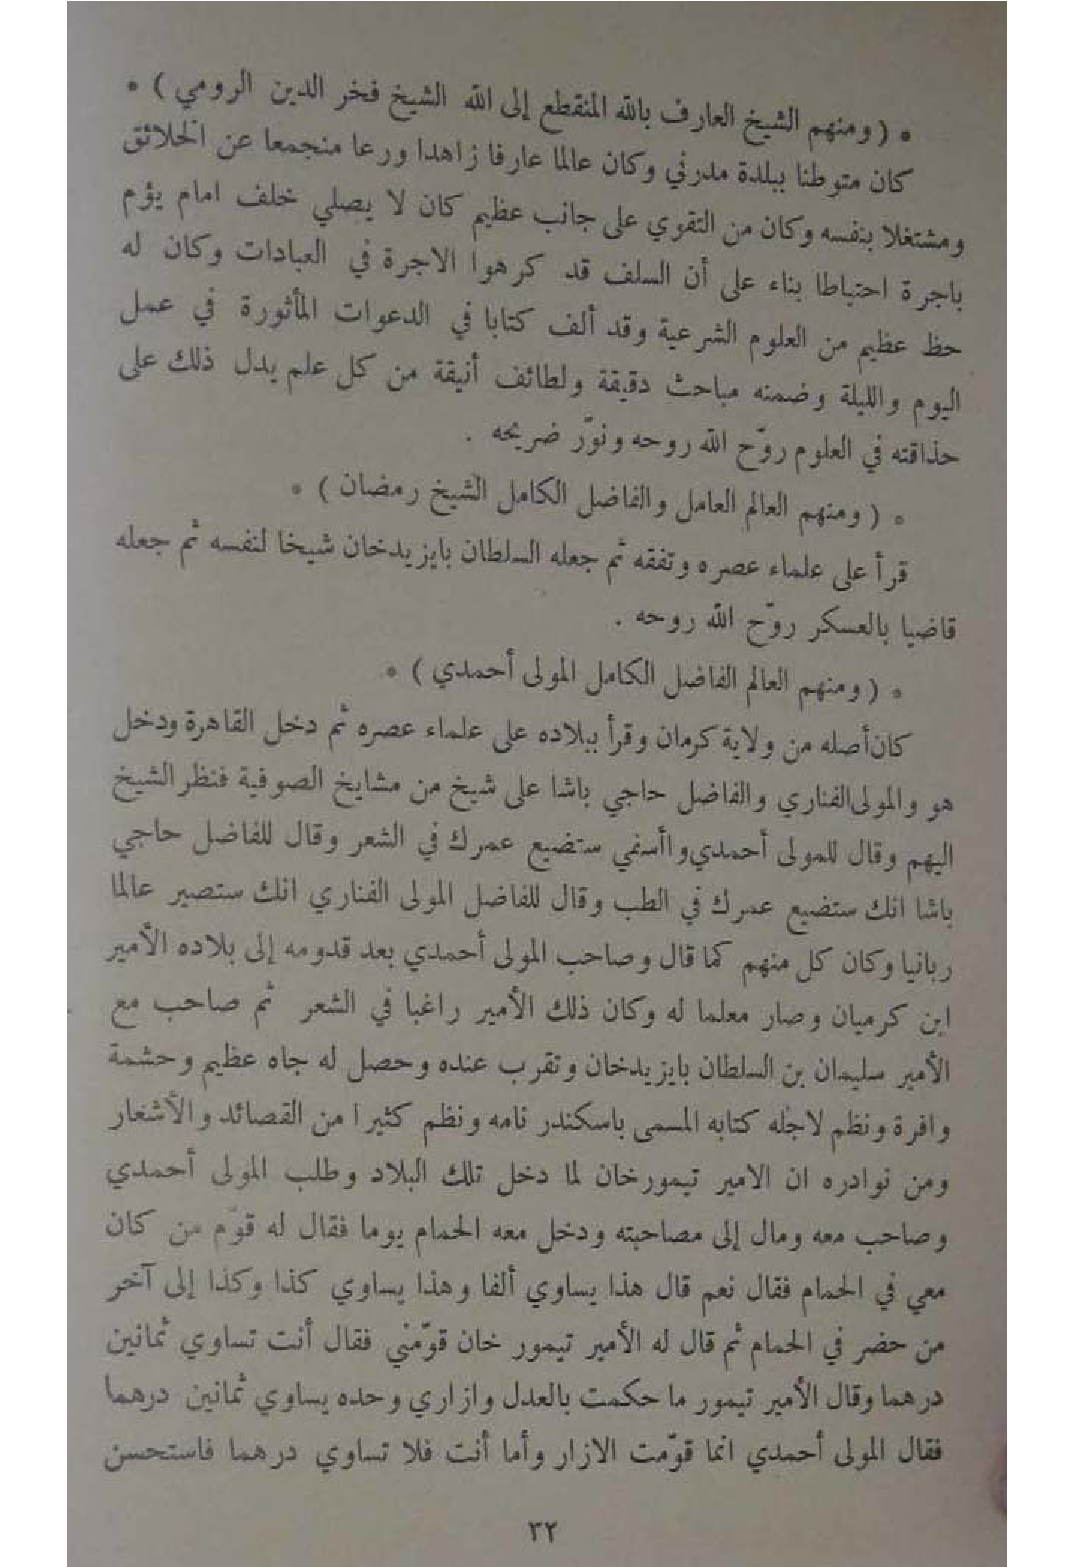 * ( ومنهم الشيخ العارف بالله المنقطع إلى الله الشيخ فخر الدين الرومي ) *
كان متوطنا ببلدة مدرني وكان عالما عارفا زاهدا ورعا منجمعا عن الخلائق
ومشتغلا بنفسه وكان من التقوي على جانب عظيم كان لا يصلي خلف امام يؤم
باجرة احتياطا بناء على أن السلف قد كرهوا الاجرة في العبادات وكان له
حظ عظيم من العلوم الشرعية وقد ألف كتابا في الدعوات المأثورة في عمل
اليوم والليلة وضمنه مباحث دقيقة ولطائف أنيقة من كل علم يدل ذلك على
حذاقته في العلوم روّح الله روحه ونوّر ضريحه .
* ( ومنهم العالم العامل والفاضل الكامل الشيخ رمضان ) *
قرأ على علماء عصره وتفقه ثم جعله السلطان بايزيدخان شيخا لنفسه ثم جعله
قاضيا بالعسكر روّح الله روحه .
* ( ومنهم العالم الفاضل الكامل المولى أحمدي ) *
كان أصله من ولاية كرمان وقرأ ببلاده على علماء عصره ثم دخل القاهرة ودخل
هو والمولى الفناري والفاضل حاجي باشا على شيخ من مشايخ الصوفية فنظر الشيخ
اليهم وقال للمولى أحمدي واأسفي ستضيع عمرك في الشعر وقال للفاضل حاجي
باشا انك ستضيع عمرك في الطب وقال للفاضل المولى الفناري انك ستصير عالما
ربانيا وكان كل منهم كما قال وصاحب المولى أحمدي بعد قدومه إلى بلاده الأمير
ابن كرميان وصار معلما له وكان ذلك الأمير راغبا في الشعر ثم صاحب مع
الأمير سليمان بن السلطان بايزيدخان وتقرب عنده وحصل له جاه عظيم وحشمة
وافرة ونظم لاجله كتابه المسمى باسكندر نامه ونظم كثيرا من القصائد والأشعار
ومن نوادره ان الامير تيمورخان لما دخل تلك البلاد وطلب المولى أحمدي
وصاحب معه ومال إلى مصاحبته ودخل معه الحمام يوما فقال له قوّم من كان
معي في الحمام فقال نعم قال هذا يساوي ألفا وهذا يساوي كذا وكذا إلى آخر
من حضر في الحمام ثم قال له الأمير تيمور خان قوّمني فقال أنت تساوي ثمانين
درهما وقال الأمير تيمور ما حكمت بالعدل وازاري وحده يساوي ثمانين درهما
فقال المولى أحمدي انما قوّمت الازار وأما أنت فلا تساوي درهما فاستحسن
٣٢